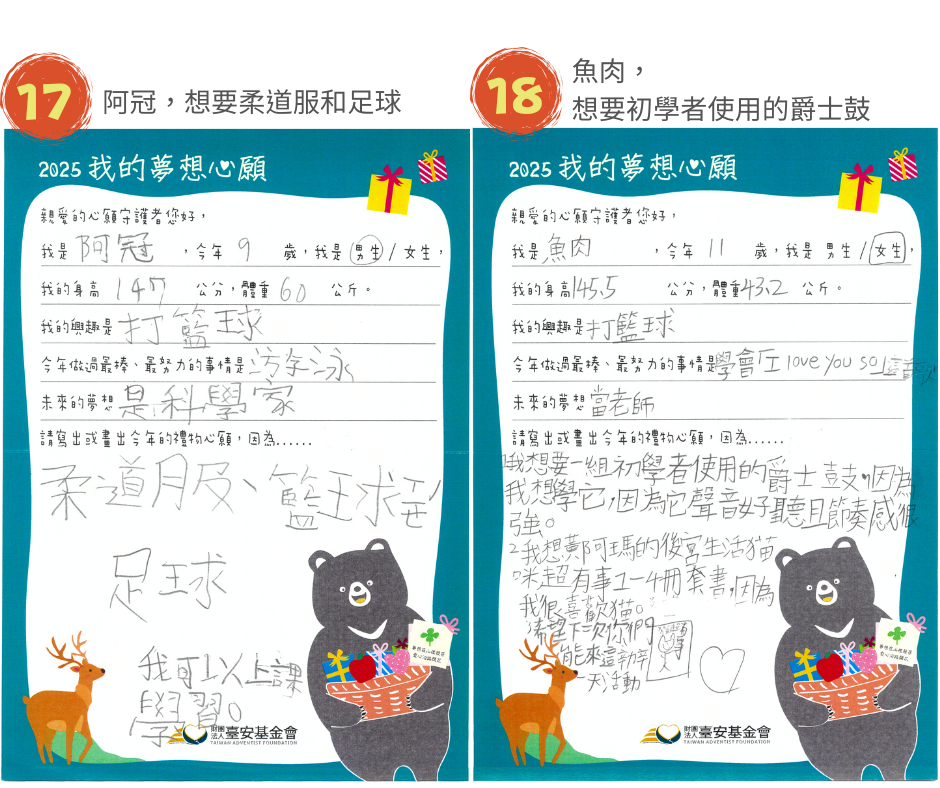 17
阿冠，想要柔道服和足球
2025 我的夢想心願
親愛的心願守護者您好，
我是 阿冠 ，今年 9 歲，我是 男生 / 女生，
我的身高 147 公分，體重 60 公斤。
我的興趣是 打籃球
今年做過最棒、最努力的事情是 游泳
未來的夢想 是科學家
請寫出或畫出今年的禮物心願，因為......
柔道服、籃球
足球
我可以上課
學習。
財團法人 臺安基金會
TAIWAN ADVENTIST FOUNDATION
18
魚肉，
想要初學者使用的爵士鼓
2025 我的夢想心願
親愛的心願守護者您好，
我是 魚肉 ，今年 11 歲，我是 男生 / 女生，
我的身高 145.5 公分，體重 43.2 公斤。
我的興趣是 打籃球
今年做過最棒、最努力的事情是 學會「I love you so
未來的夢想 當老師
請寫出或畫出今年的禮物心願，因為......
我想要一組初學者使用的爵士鼓，因為
我想學它，因為它聲音好聽且節奏感很
強。
2.我想黃阿瑪的後宮生活貓
咪超有事1-4冊套書，因為
我很喜歡貓。
希望下次你們
能來這
天活動
財團法人 臺安基金會
TAIWAN ADVENTIST FOUNDATION